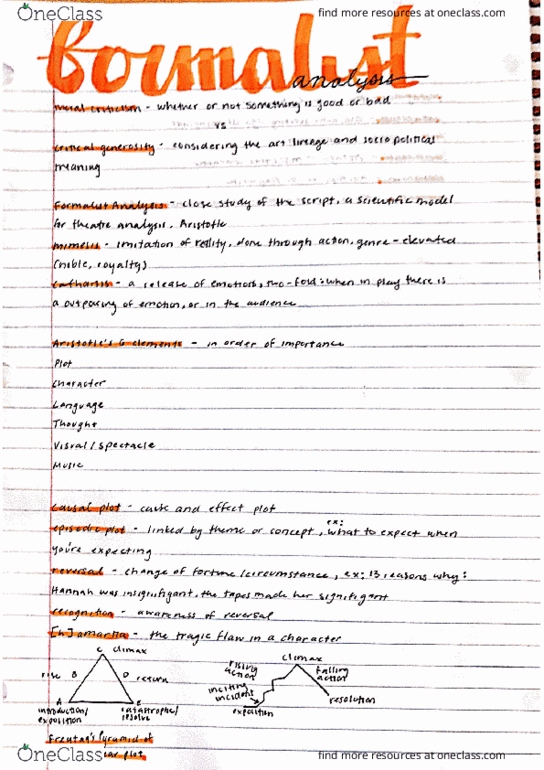 OneClass
find more resources at oneclass.com
formalist
analysis
moral criticism - whether or not something is good or bad
vs
critical generosity - considering the art lineage and sociopolitical
meaning
Formalist Analysis - close study of the script, a scientific model
for theatre analysis. Aristotle
mimesis - imitation of reality, done through action, genre - elevated
(noble, royalty)
catharsis - a release of emotions, two-fold: when in play there is
a outpouring of emotion, or in the audience
Aristotle's 6 elements - in order of importance
Plot
Character
Language
Thought
Visual / Spectacle
Music
Causal plot - cause and effect plot
ex:
episodic plot - linked by theme or concept, what to expect when
you're expecting
reversal - change of fortune/circumstance, ex: 13 reasons why:
Hannah was insignifigant, the tapes made her significant
recognition - awareness of reversal
[h]amartia - the tragic flaw in a character
C climax
rise B
D return
A
E
introduction/
exposition
catastrophe/
resolve
climax
rising
action
falling
action
inciting
incident
resolution
exposition
Freytag's Pyramid of
plot
OneClass
find more resources at oneclass.com